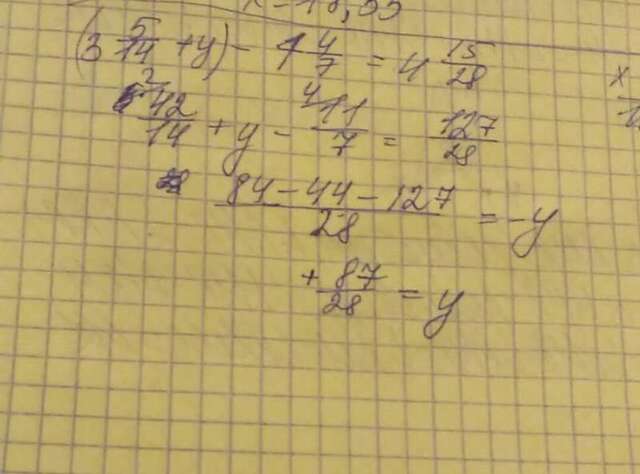 (3 5/14 + y) - 1 4/7 = 4 15/28
42/14 + y - 11/7 = 127/28
84 - 44 - 127/28 = -y
+ 87/28 = y